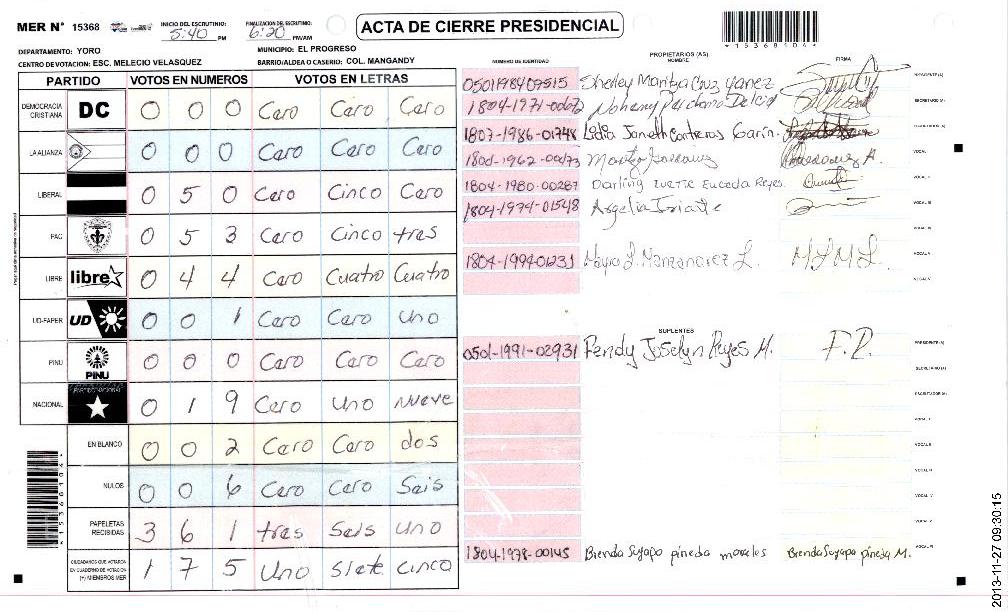 MER N° 15368 INICIO DEL ESCRUTINIO: 5:40 PM FINALIZACION DEL ESCRUTINIO: 6:20 PM/AM ACTA DE CIERRE PRESIDENCIAL
*15368104*
DEPARTAMENTO: YORO MUNICIPIO: EL PROGRESO
CENTRO DE VOTACION: ESC. MELECIO VELASQUEZ BARRIO/ALDEA O CASERIO: COL. MANGANDY
PARTIDO VOTOS EN NUMEROS VOTOS EN LETRAS
DEMOCRACIA CRISTIANA DC 0 0 0 Cero Cero Cero
LA ALIANZA 0 0 0 Cero Cero Cero
LIBERAL 0 5 0 Cero Cinco Cero
PAC 0 5 3 Cero Cinco tres
LIBRE libre 0 4 4 Cero Cuatro Cuatro
UD-FAPER UD 0 0 1 Cero Cero uno
PINU PINU 0 0 0 Cero Cero Cero
NACIONAL PARTIDO NACIONAL 0 1 9 Cero Uno Nueve
EN BLANCO 0 0 2 Cero Cero dos
NULOS 0 0 6 Cero Cero Seis
PAPELETAS RECIBIDAS 3 6 1 tres Seis uno
CIUDADANOS QUE VOTARON EN CUADERNO DE VOTACION (+) MIEMBROS MER 1 7 5 Uno Siete cinco
*15368104*
NUMERO DE IDENTIDAD PROPIETARIOS (AS) NOMBRE FIRMA
0501198409515 Sherley Maritza Cruz Yanez PRESIDENTE(A)
1804-1971-00672 Nohemy Perdomo Delcid SECRETARIO(A)
1807-1986-01748 Lidia Janeth Contreras Garin. ESCRUTADOR(A)
VOCAL I
1804-1980-00287 Darling Ivette Euceda Reyes. VOCAL II
1804-1974-01548 Argelia Iriarte VOCAL III
1804-1994-01231 Mayra L. Manzanarez L. M L M L. VOCAL IV
VOCAL V
SUPLENTES
0501-1991-02931 Fendy Joselyn Reyes M. F.R. PRESIDENTE(A)
SECRETARIO(A)
ESCRUTADOR(A)
VOCAL I
VOCAL II
VOCAL III
VOCAL IV
VOCAL V
1804-1978-00145 Brenda Suyapa pineda morales Brenda Suyapa pineda M. VOCAL VI
2013-11-27 09:30:15